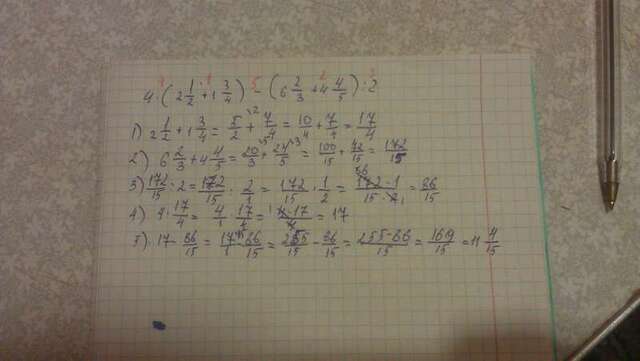 4·(2 1/2 + 1 3/4) - (6 2/3 + 4 4/5) : 2
1) 2 1/2 + 1 3/4 = 5/2 + 7/4 = 10/4 + 7/4 = 17/4
2) 6 2/3 + 4 4/5 = 20/3 + 24/5 = 100/15 + 72/15 = 172/15
3) 172/15 : 2 = 172/15 : 2/1 = 172/15 · 1/2 = 172·1/15·2 = 86/15
4) 4· 17/4 = 4/1 · 17/4 = 4·17/4 = 17
5) 17 - 86/15 = 17/1 - 86/15 = 255/15 - 86/15 = 255-86/15 = 169/15 = 11 4/15